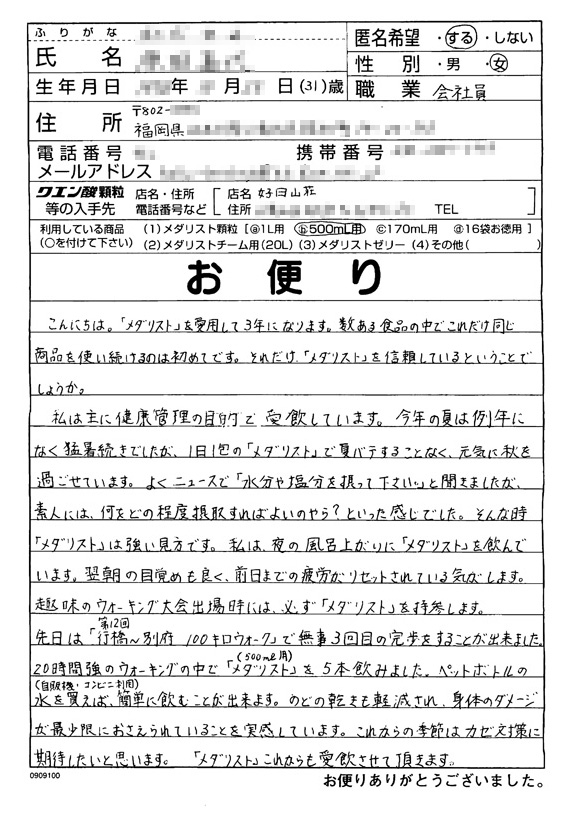 ふりがな
氏　名
匿名希望 ・する・しない
性　別 ・男 ・女
生年月日　年　月　日（31）歳
職　業 会社員
住　所 〒802-
福岡県
電話番号　携帯番号
メールアドレス
クエン酸顆粒 等の入手先 店名・住所 電話番号など [ 店名 好日山荘
住所　TEL ]
利用している商品 (○を付けて下さい) (1)メダリスト顆粒 [ⓐ1L用 ⓑ500mL用 ⓒ170mL用 ⓓ16袋お徳用]
(2)メダリストチーム用(20L) (3)メダリストゼリー (4)その他( )
お便り
こんにちは。「メダリスト」を愛用して3年になります。数ある食品の中でこれだけ同じ
商品を使い続けるのは初めてです。それだけ、「メダリスト」を信頼しているということで
しょうか。
私は主に健康管理の目的で愛飲しています。今年の夏は例年に
なく猛暑続きでしたが、1日1包の「メダリスト」で夏バテすることなく、元気に秋を
過ごせています。よくニュースで「水分や塩分を摂って下さい」と聞きましたが、
素人には、何をどの程度摂取すればよいのやら?といった感じでした。そんな時
「メダリスト」は強い見方です。私は、夜の風呂上がりに「メダリスト」を飲んで
います。翌朝の目覚めも良く、前日までの疲労がリセットされている気がします。
趣味のウォーキング大会出場時には、必ず「メダリスト」を持参します。
先日は「第12回行橋〜別府 100キロウォーク」で無事3回目の完歩をすることが出来ました。
20時間強のウォーキングの中で「メダリスト」(500ml用)を5本飲みました。ペットボトルの
水を買えば(自販機・コンビニ利用)、簡単に飲むことが出来ます。のどの乾きも軽減され、身体のダメージ
が最少限におさえられていることを実感しています。これからの季節はカゼ対策に
期待したいと思います。「メダリスト」これからも愛飲させて頂きます。
0909100
お便りありがとうございました。